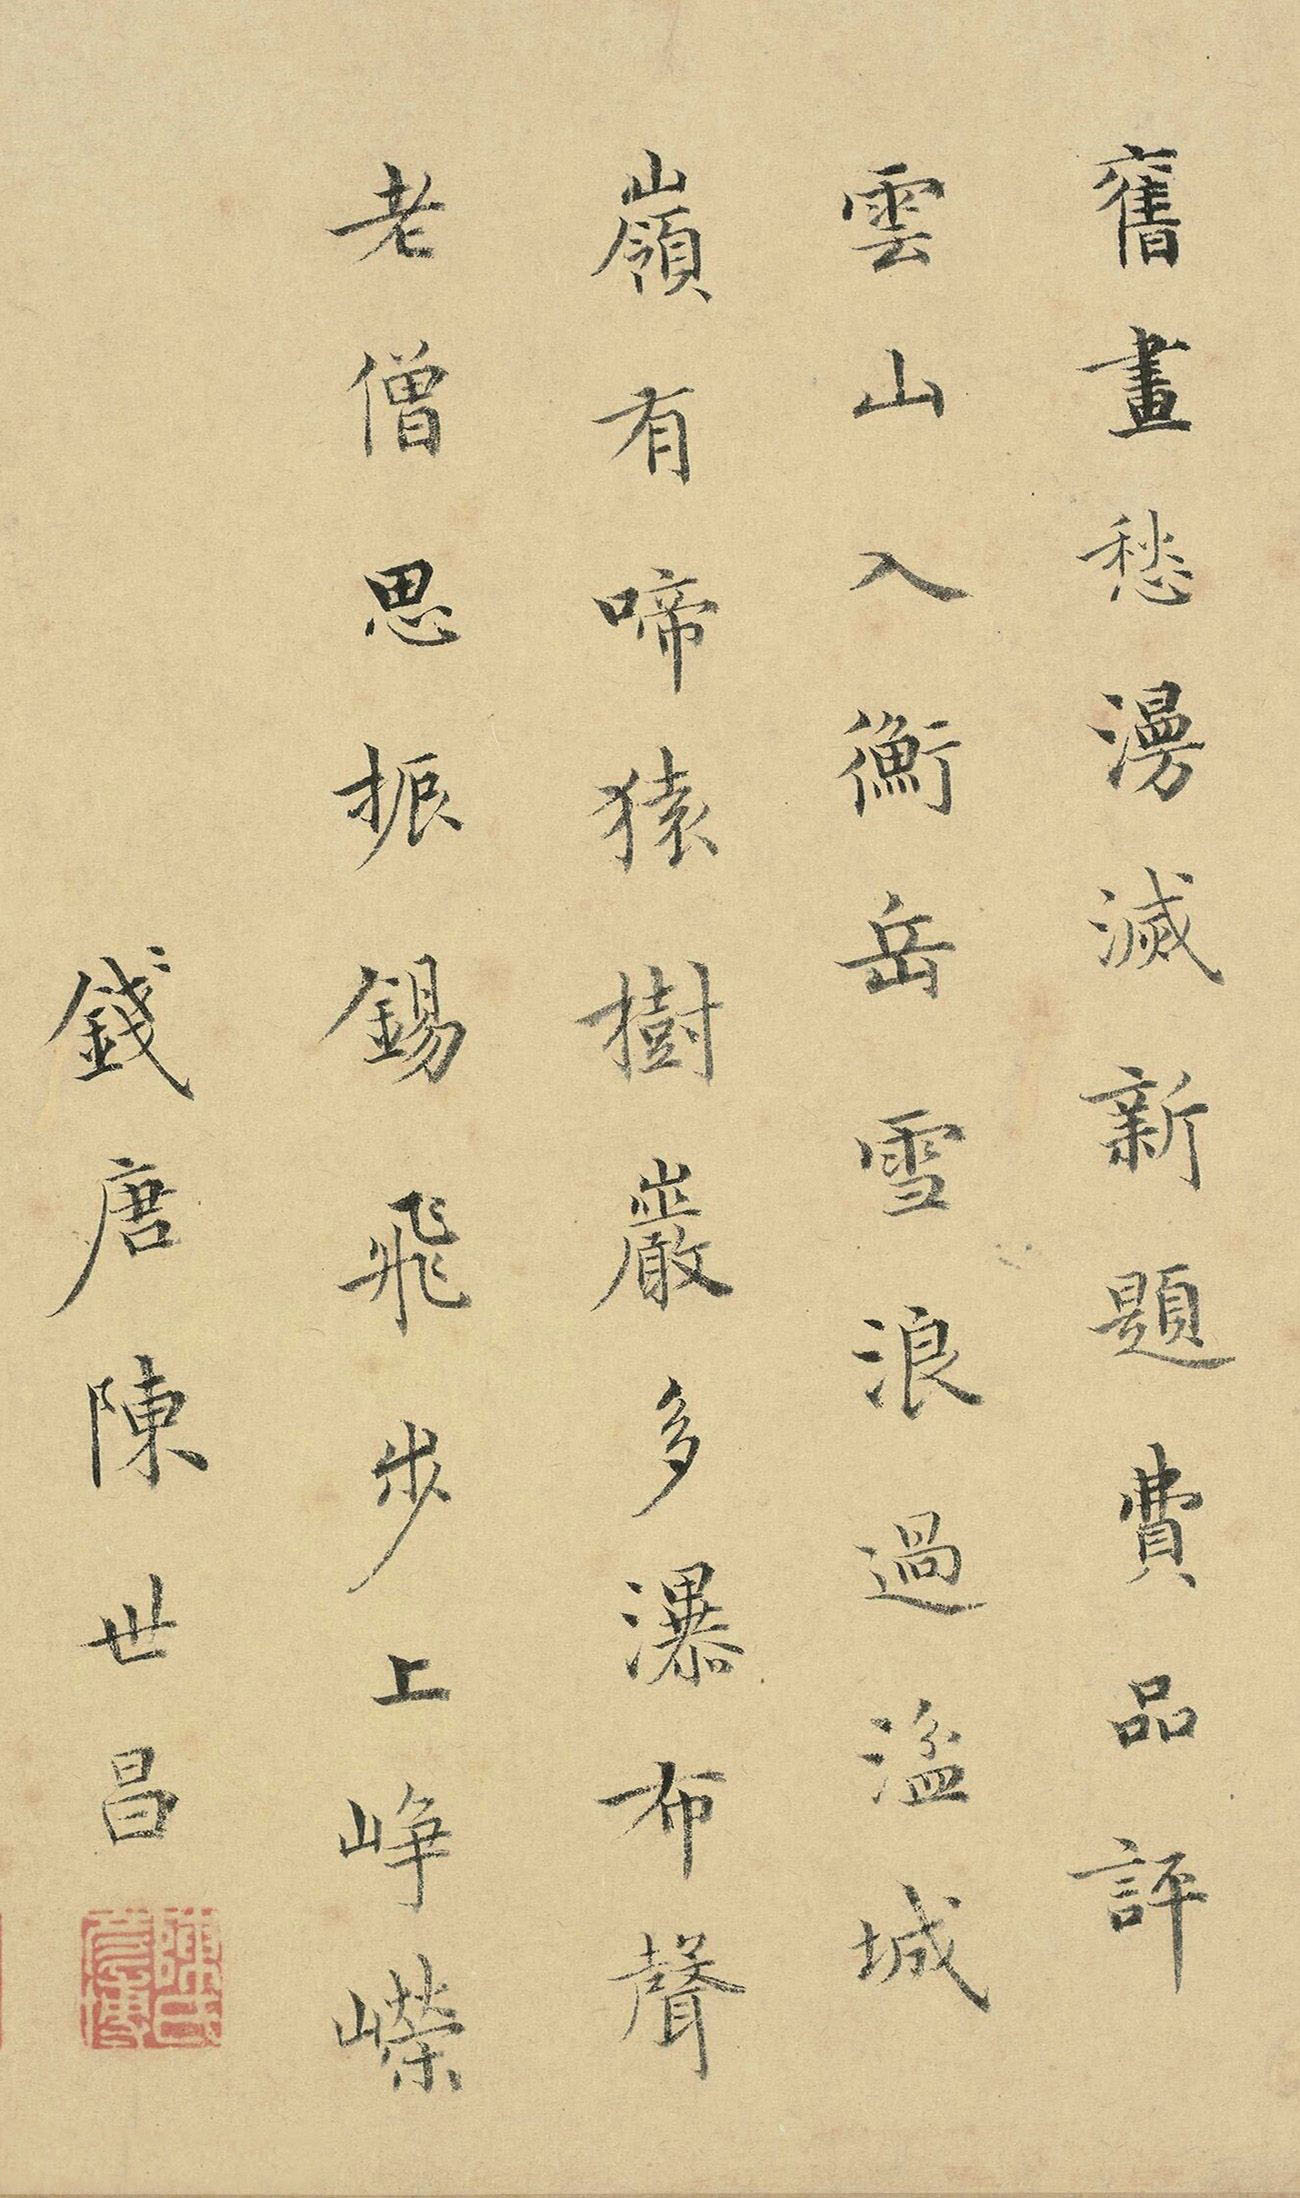 舊畫愁漫滅新題費品評
雲山入衡岳雪浪過湓城
嶺有啼猿樹巖多瀑布聲
老僧思振錫飛步上崢嶸
錢唐陳世昌